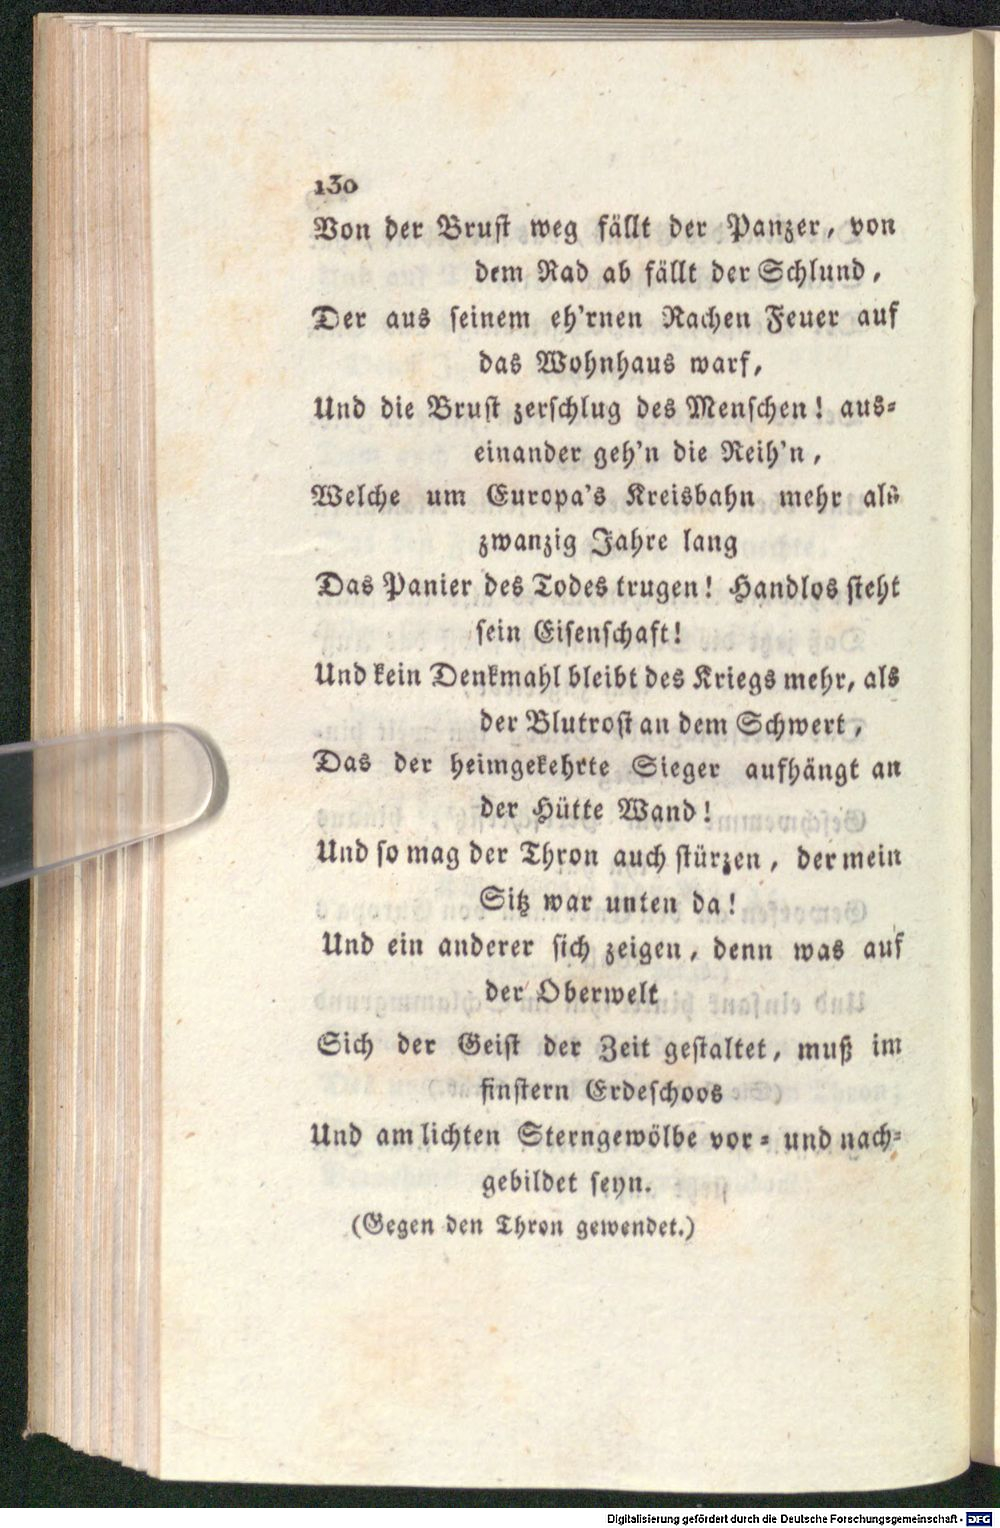 130
Von der Brust weg fällt der Panzer, von
dem Rad ab fällt der Schlund,
Der aus seinem eh'rnen Rachen Feuer auf
das Wohnhaus warf,
Und die Brust zerschlug des Menschen! aus-
einander geh'n die Reih'n,
Welche um Europa's Kreisbahn mehr als
zwanzig Jahre lang
Das Panier des Todes trugen! Handlos steht
sein Eisenschaft!
Und kein Denkmahl bleibt des Kriegs mehr, als
der Blutrost an dem Schwert,
Das der heimgekehrte Sieger aufhängt an
der Hütte Wand!
Und so mag der Thron auch stürzen, der mein
Sitz war unten da!
Und ein anderer sich zeigen, denn was auf
der Oberwelt
Sich der Geist der Zeit gestaltet, muß im
finstern Erdeschoos
Und am lichten Sterngewölbe vor- und nach-
gebildet seyn.
(Gegen den Thron gewendet.)
Digitalisierung gefördert durch die Deutsche Forschungsgemeinschaft - DFG